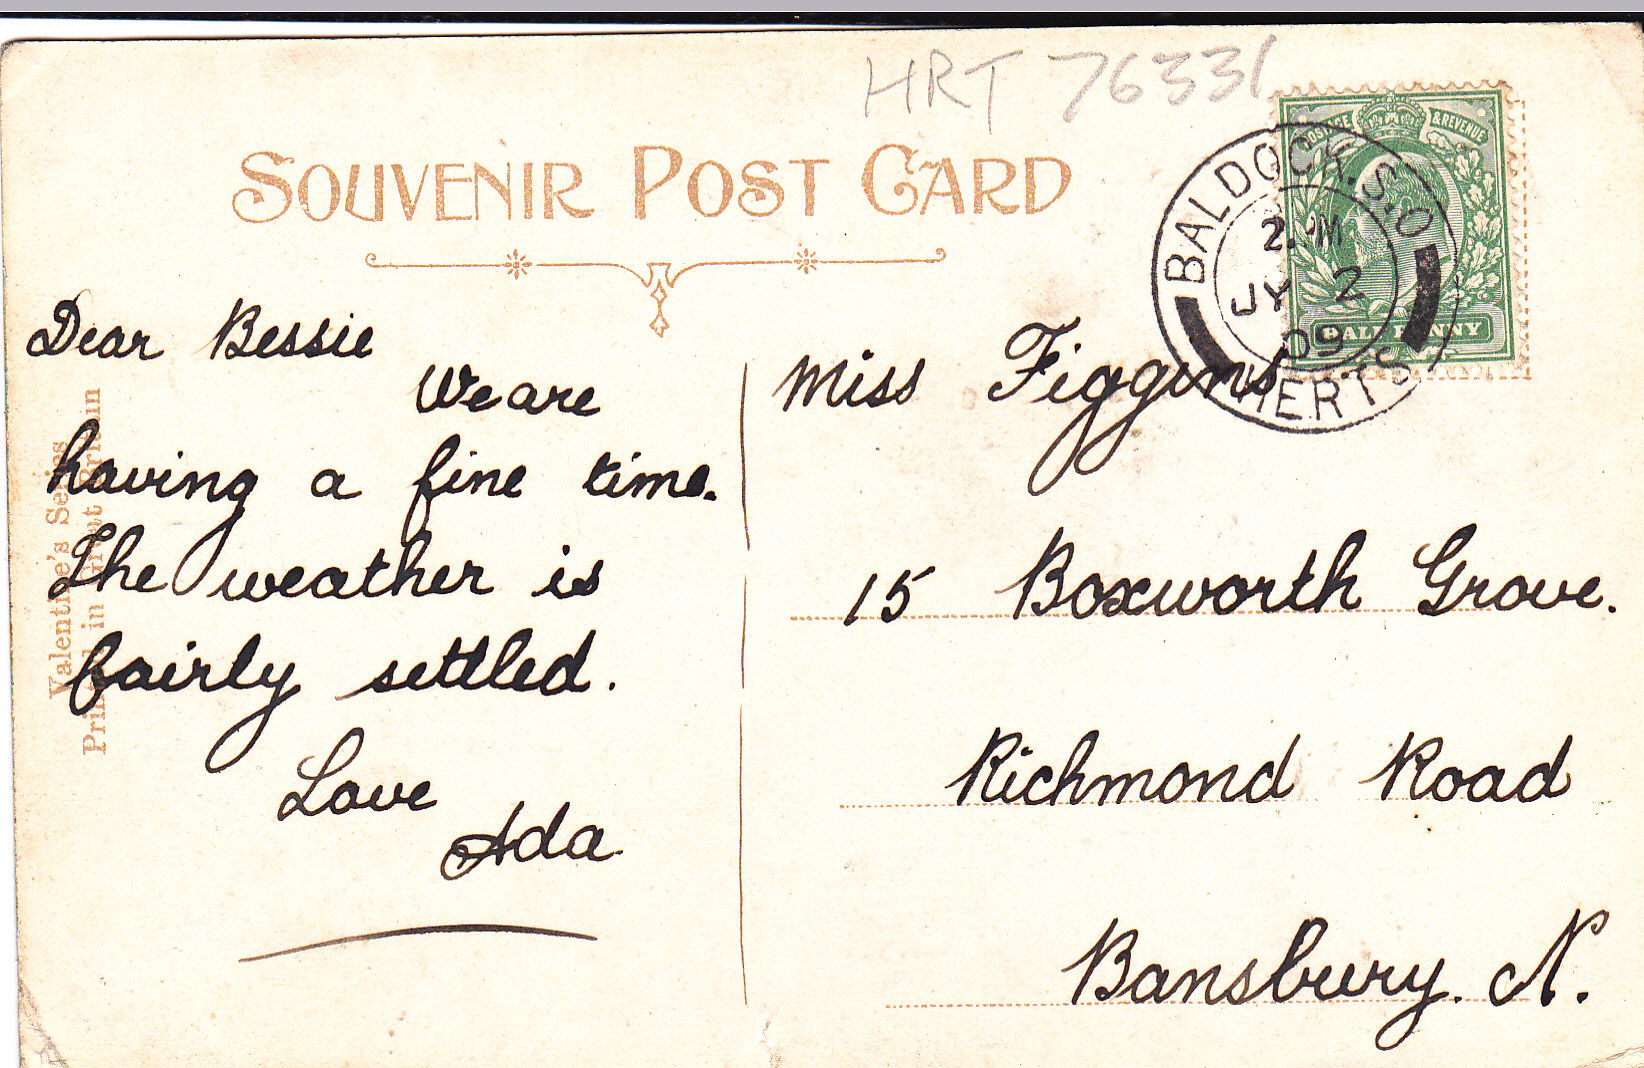 HRT 76331
SOUVENIR POST CARD
POSTAGE & REVENUE
HALFPENNY
BALDOCK. S.O
2. PM
JY 2
09
HERTS
Dear Bessie
We are
having a fine time.
The weather is
fairly settled.
Love
Ada
Miss Figgins
15 Boxworth Grove.
Richmond Road
Bansbury. N.
Valentine's Series
Printed in Great Britain